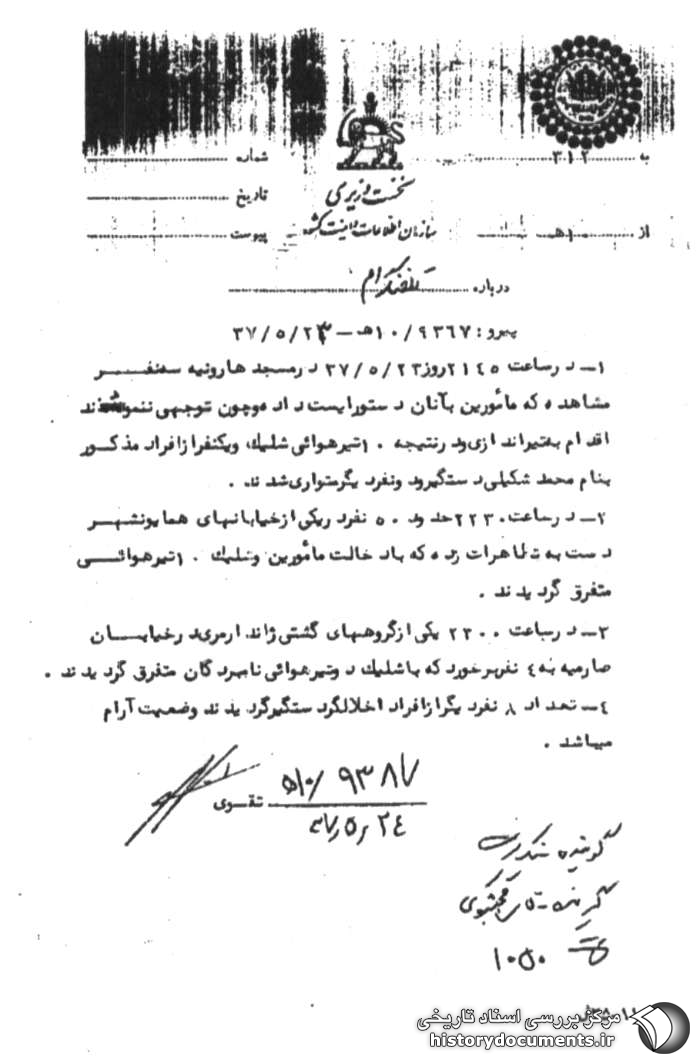 به ۳۱۲ شماره
نخست وزیری
تاریخ
از ۱۰هـ سازمان اطلاعات و امنیت کشور پیوست
درباره تلفنگرام
پیرو : ۱۰/۹۳۶۷هـ – ۳۷/۵/۲۳
۱– درساعت ۲۱۴۵روز ۳۷/۵/۲۳ درمسجد هارونیه سه‌نفر
مشاهده که مأمورین بآنان دستورایست داده وچون توجهی ننمودند
اقدام به‌تیراندازی ودرنتیجه ۱۰تیرهوائی شلیک ویکنفرازافراد مذکور
بنام محمد شکیلی دستگیرودونفردیگرمتواری شدند .
۲– درساعت۲۲۳۰حدود ۵۰ نفردریکی ازخیابانهای همایونشهر
دست به تظاهرات زده که بادخالت مأمورین وشلیک ۱۰تیرهوائی
متفرق گردیدند .
۳– درساعت ۲۳۰۰ یکی ازگروههای گشتی ژاندارمری درخیابان
صارمیه به ٤ نفربرخورد که باشلیک دوتیرهوائی نامبردگان متفرق گردیدند .
٤– تعداد ۸ نفردیگرازافراد اخلالگردستگیرگردیدند وضعیت آرام
میباشد .
۱۰/۹۳۸۷هـ
تقوی
۳۷/۵/۲٤
گوینده
گیرنده
۱۰۵۰
مرکز بررسی اسناد تاریخی
historydocuments.ir